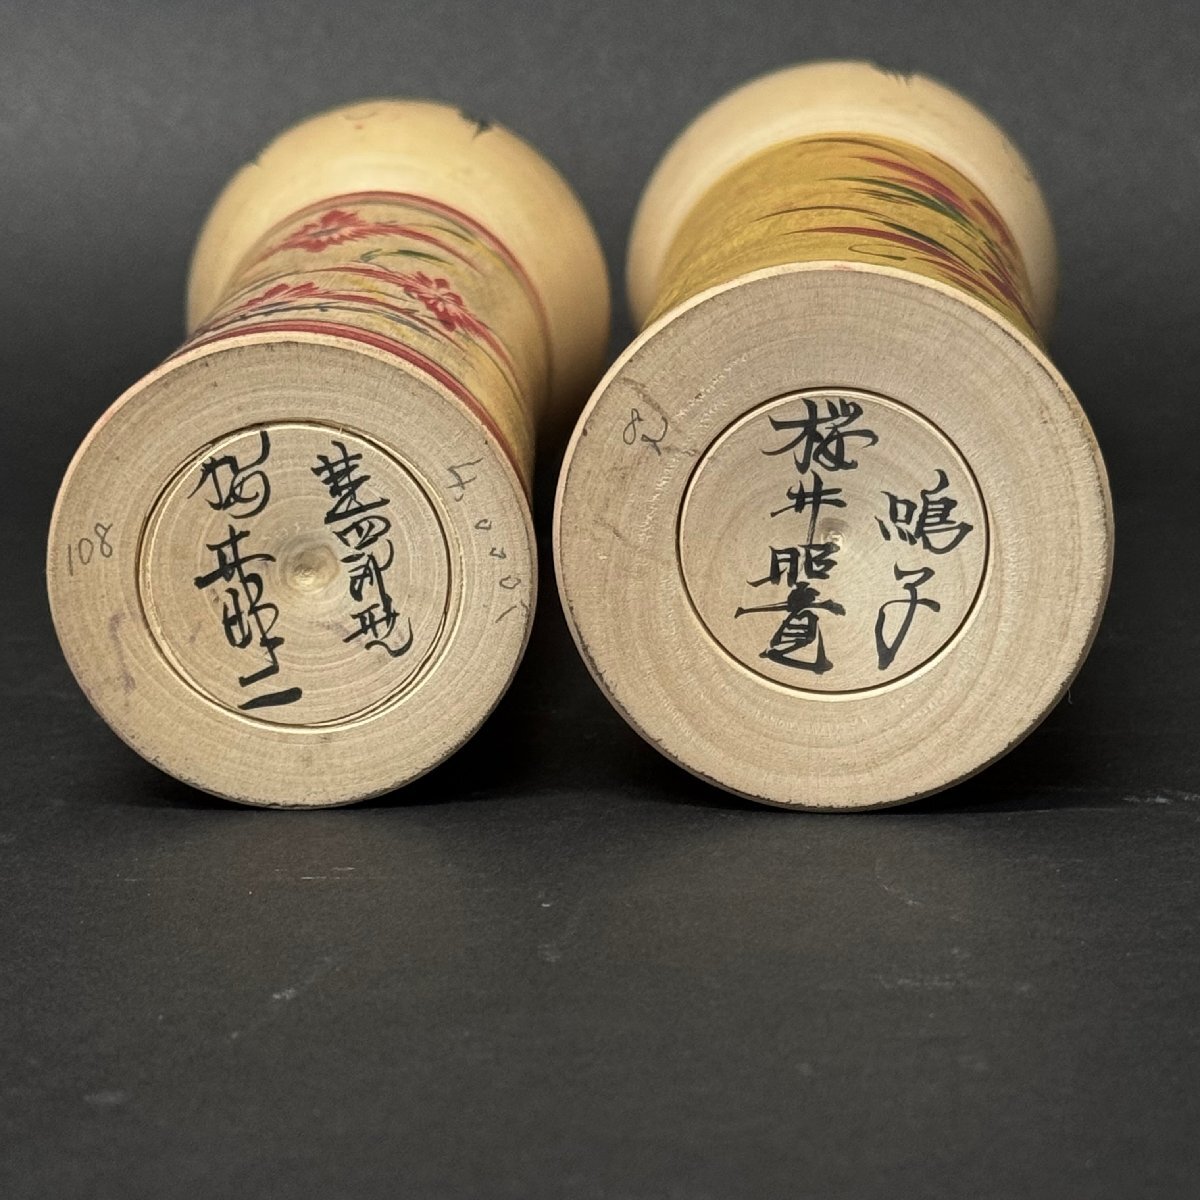 荒四郎型
桜井昭二
108
4000
82
鳴子
桜井昭寛